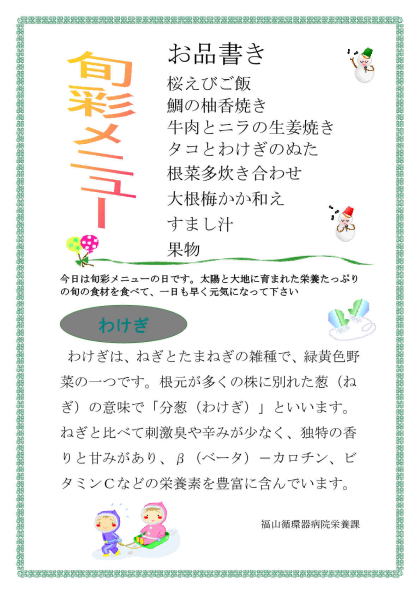 旬彩メニュー
お品書き
桜えびご飯
鯛の柚香焼き
牛肉とニラの生姜焼き
タコとわけぎのぬた
根菜多炊き合わせ
大根梅かか和え
すまし汁
果物
今日は旬彩メニューの日です。太陽と大地に育まれた栄養たっぷり
の旬の食材を食べて、一日も早く元気になって下さい
わけぎ
わけぎは、ねぎとたまねぎの雑種で、緑黄色野
菜の一つです。根元が多くの株に別れた葱（ね
ぎ）の意味で「分葱（わけぎ）」といいます。
ねぎと比べて刺激臭や辛みが少なく、独特の香
りと甘みがあり、β（ベータ）－カロチン、ビ
タミンＣなどの栄養素を豊富に含んでいます。
福山循環器病院栄養課